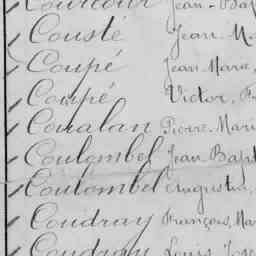 Courcoux Jean-Bap
Cousté Jean M
Coupé Jean Marie,
Coupé Victor, F
Coualan Pierre Mari
Coulombel Jean Bapt
Coulombel Augustin,
Coudray François, Ma
Coudray Louis Jose